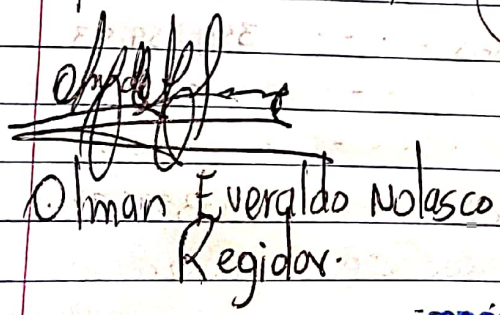 Olman Everaldo Nolasco
Regidor.